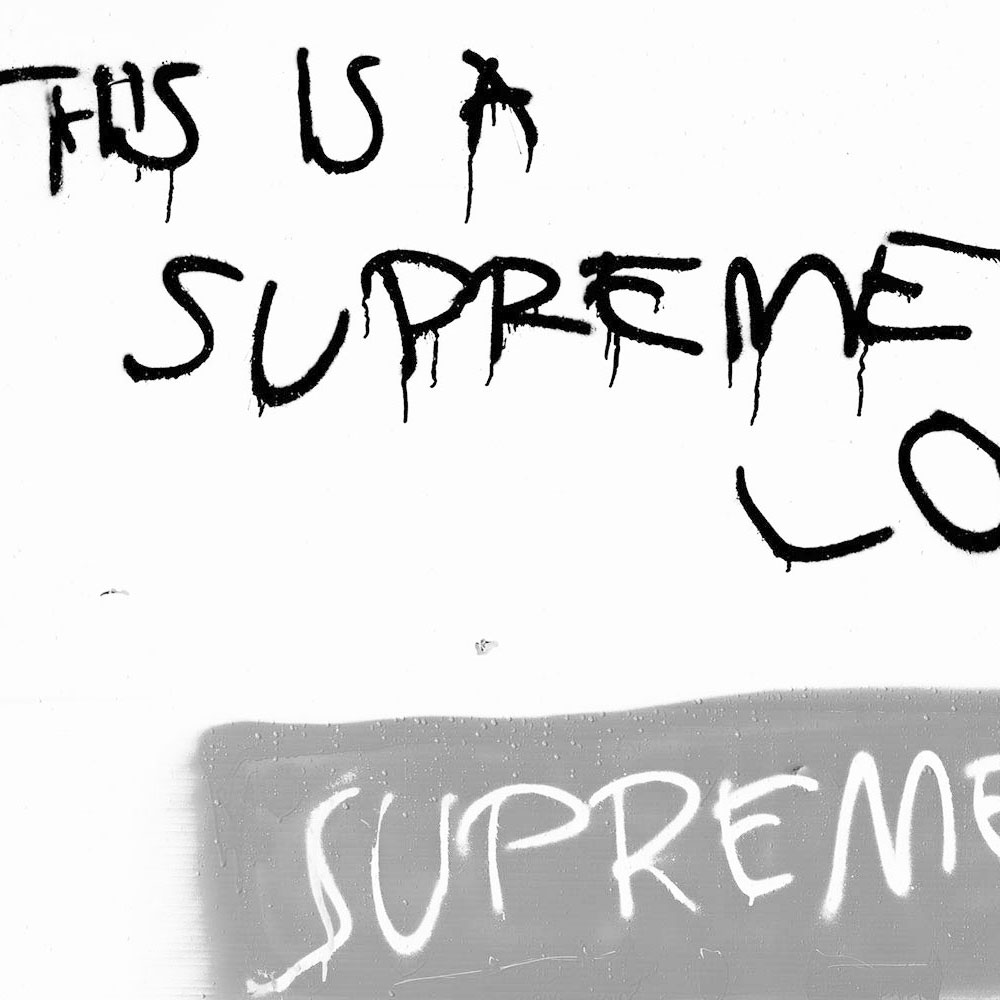 THIS IS A
SUPREME
LO
SUPREME